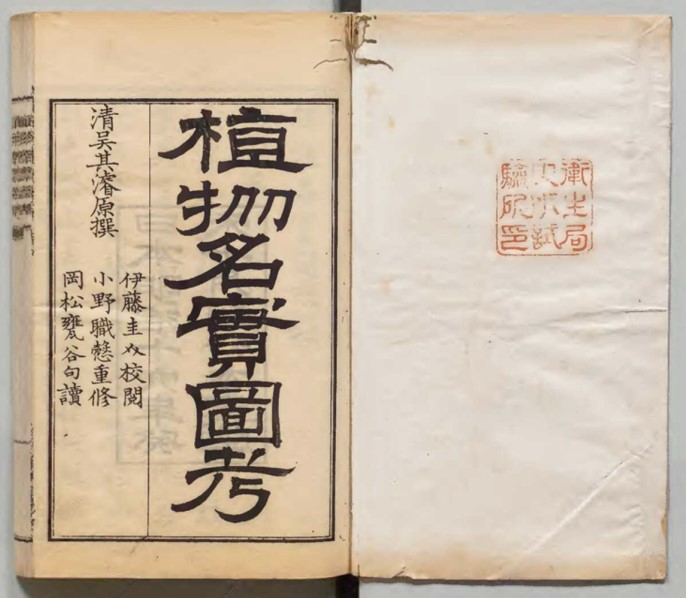 衛生局
試
驗所印
植物名實圖考
清吳其濬原撰
伊藤圭介校閲
小野職愨重修
岡松甕谷句讀